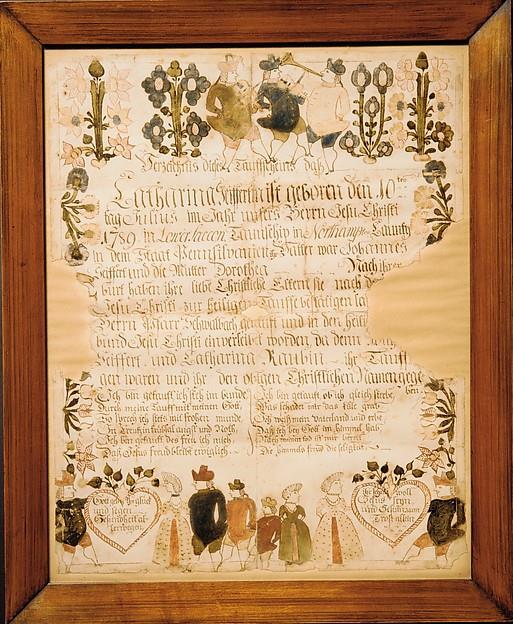 Verzeichnis dieses Taufscheins daß
Catharina Seiffertin ist geboren den 10ten
tag Julius im Jahr unsers Herrn Jesu Christi
1789 in Lower Saccon Taunschip in Northampton Caunty
in dem Staat Pennsilvanien ihr Vatter war Johannes
Seiffert und die Mutter Dorothea Nach ihrer
burt haben ihre liebe Christliche Eltern sie nach d
Jesu Christi zur heiligen Tauffe bestätigen la
Herrn Pfarr Schwalbach getaufft und in den heili
bund Jesu Christi einverleibet worden da denn
Seiffert und Catharina Raubin ihr Tauff
gen waren und ihr den obigen Christlichen Namen gege
ben
Ich bin getaufft ich steh im bunde
Durch meine Tauff mit meinem Gott
So sprech ich stets mit frohen munde
In Creutz in trübsal angst und Noth
Ich bin getaufft des freu ich mich
Daß Jesus freud bleibe ewiglich
Ich bin getauft ob ich gleich sterbe
Was schadet mir das kühle grab
Ich weiß mein Vatterland und erbe
Daß ich bey Gott im himmel hab
Nach meinem tod ist mir bereit
Des himmels freud die seligkeit
Gott geb
und segen
Gesundheit al
lerwegen
Ihr soll wol
seyn
und
Trost allein